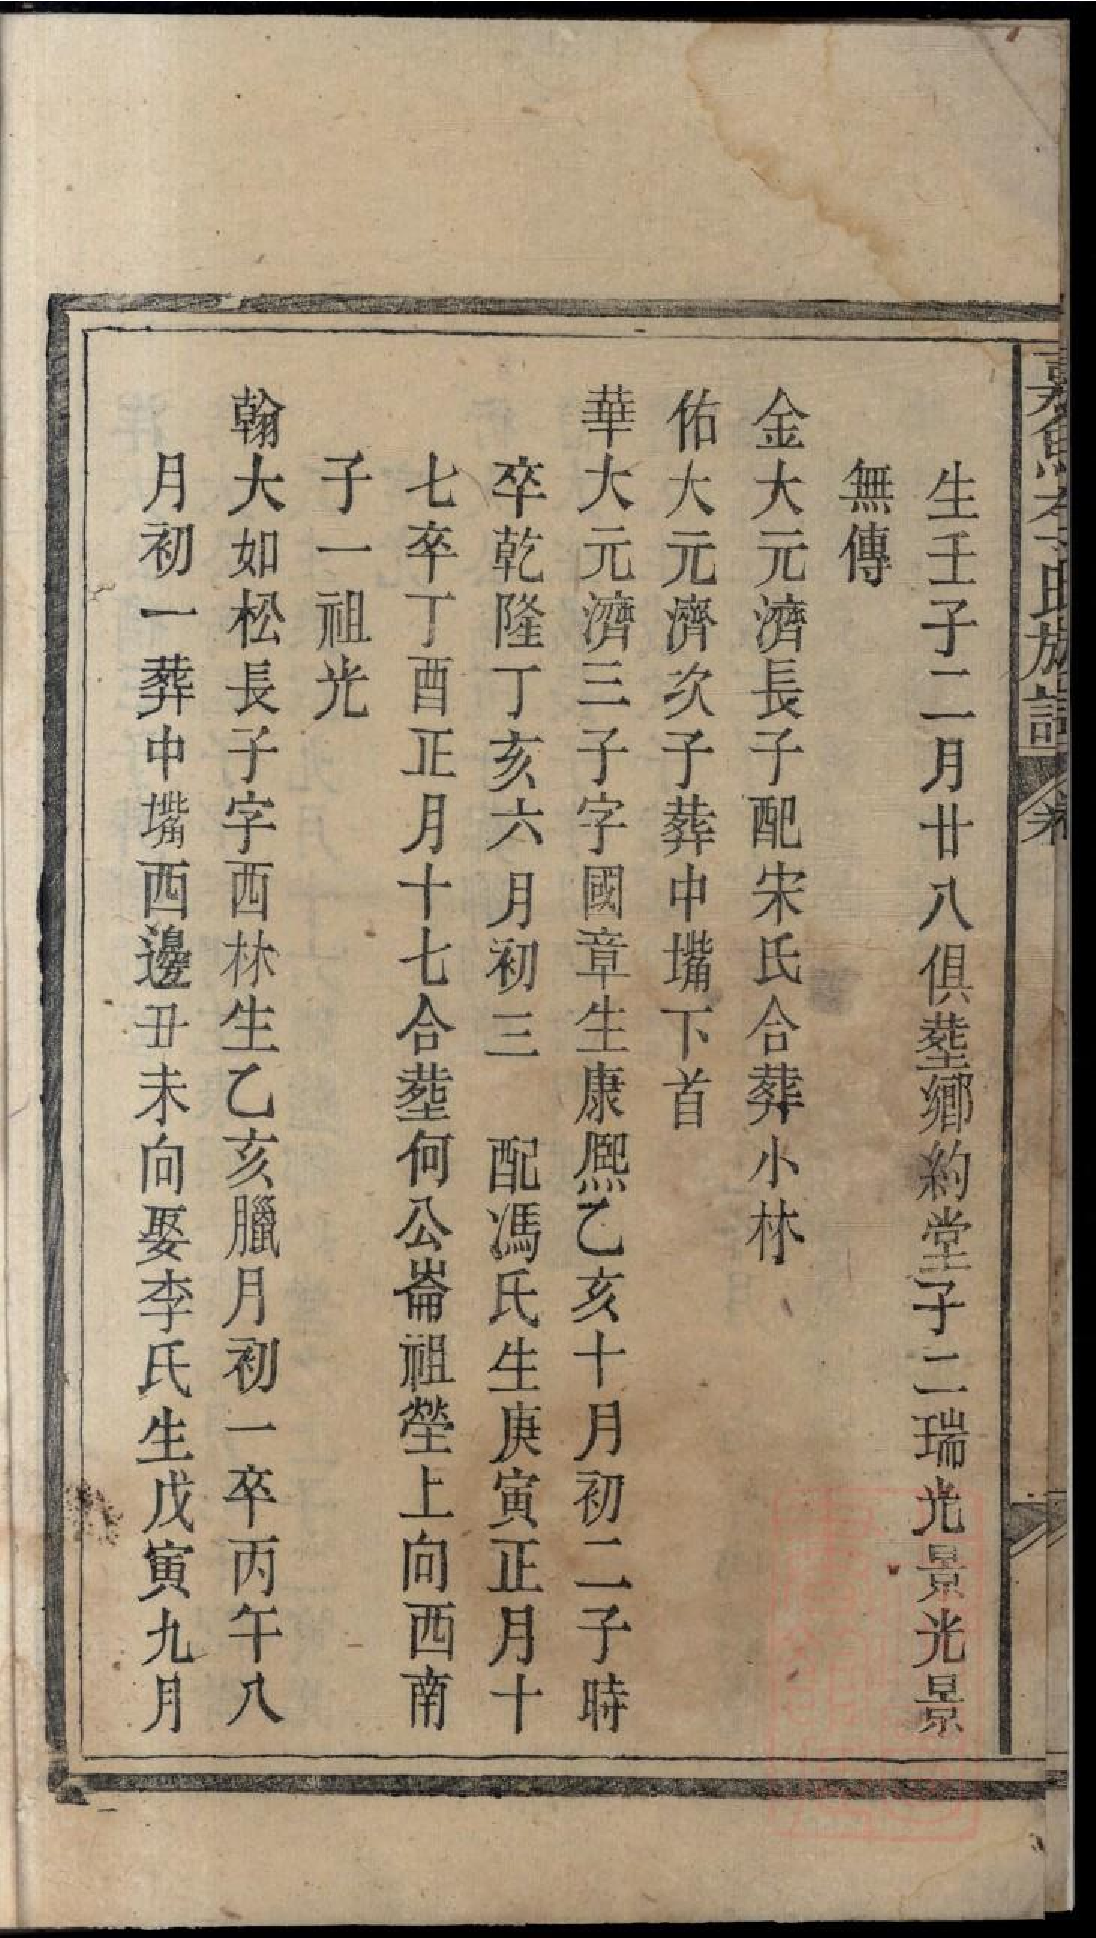 李氏族譜
生壬子二月廿八俱塟鄉約堂子二瑞光景光景
無傳
金大元濟長子配宋氏合葬小林
佑大元濟次子葬中嘴下首
華大元濟三子字國章生康熈乙亥十月初二子時
卒乾隆丁亥六月初三 配馮氏生庚寅正月十
七卒丁酉正月十七合塟何公崙祖塋上向西南
子一祖光
翰大如松長子字西林生乙亥臘月初一卒丙午八
月初一葬中嘴西邊丑未向娶李氏生戊寅九月